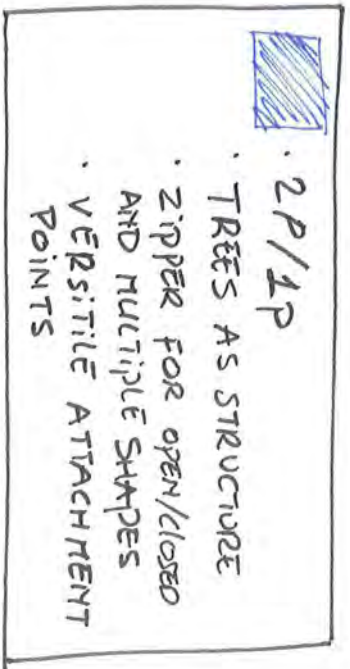 · 2P/1P
· TREES AS STRUCTURE
· ZIPPER FOR OPEN/CLOSED
AND MULTIPLE SHAPES
· VERSITILE ATTACHMENT
POINTS